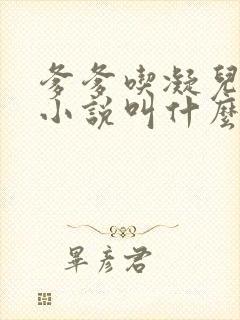 爹爹喫凝兒
小說叫什麼
畢彥君